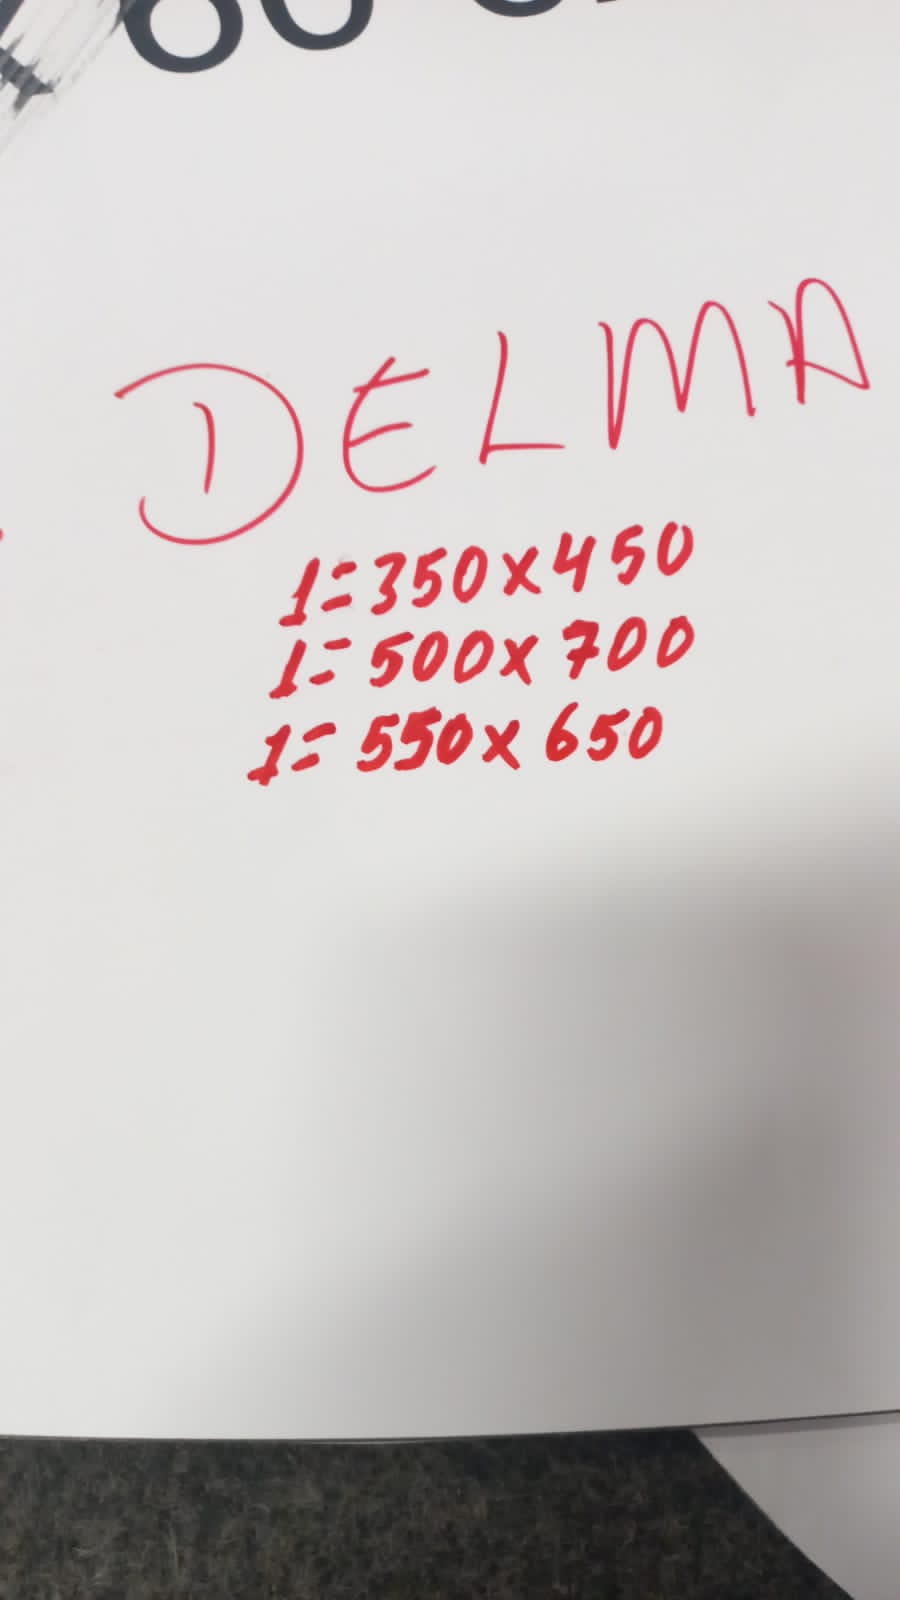 DELMA
1=350x450
1=500x700
1=550x650